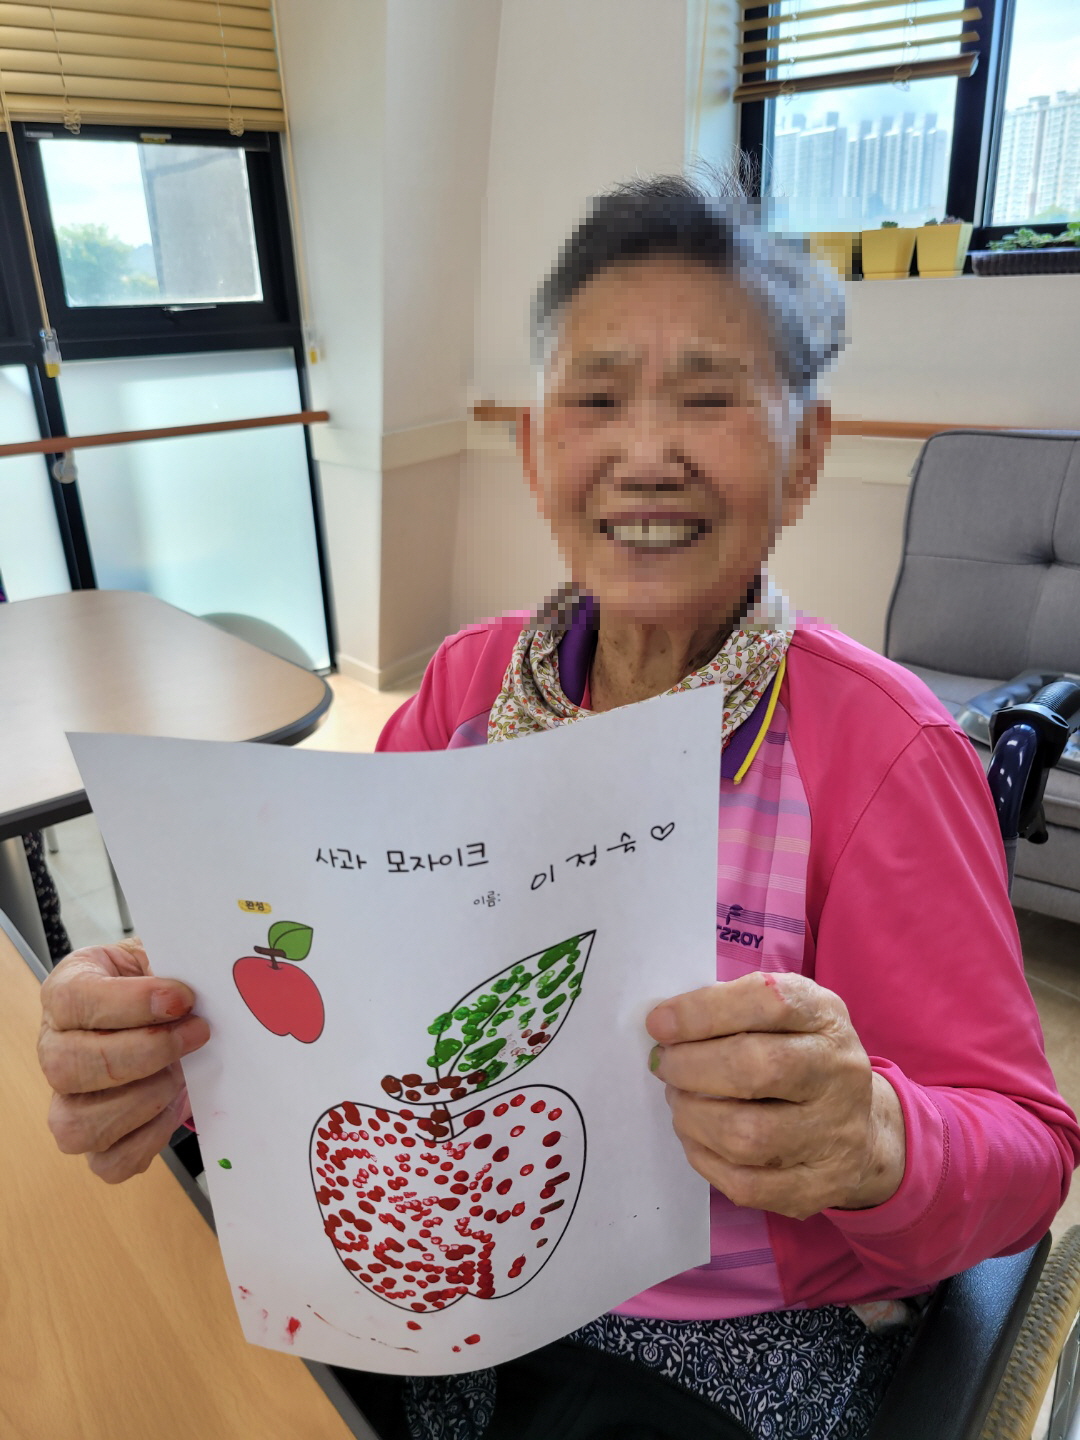 사과 모자이크
이름: 이정숙♡
완성